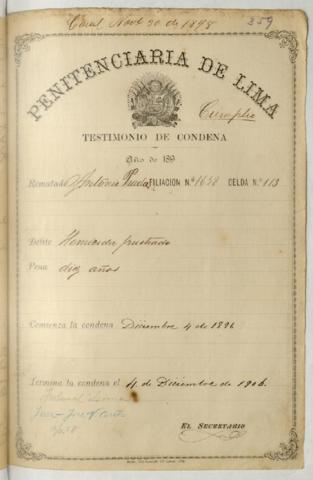 Nov 20 de 1898
359
PENITENCIARIA DE LIMA
Cumplio
TESTIMONIO DE CONDENA
Año de 189
Rematado Antonio FILIACION N.º 1658 CELDA N.º 113
Delito Homicidio frustrado
Pena diez años
Comienza la condena Diciembre 4 de 1896
Termina la condena el 4 de Diciembre de 1906
EL SECRETARIO